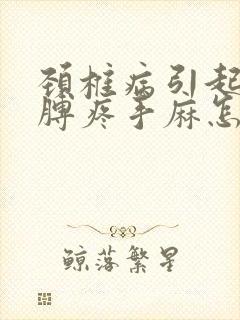 颈椎病引起
脾疼手麻怎
鲸落繁星